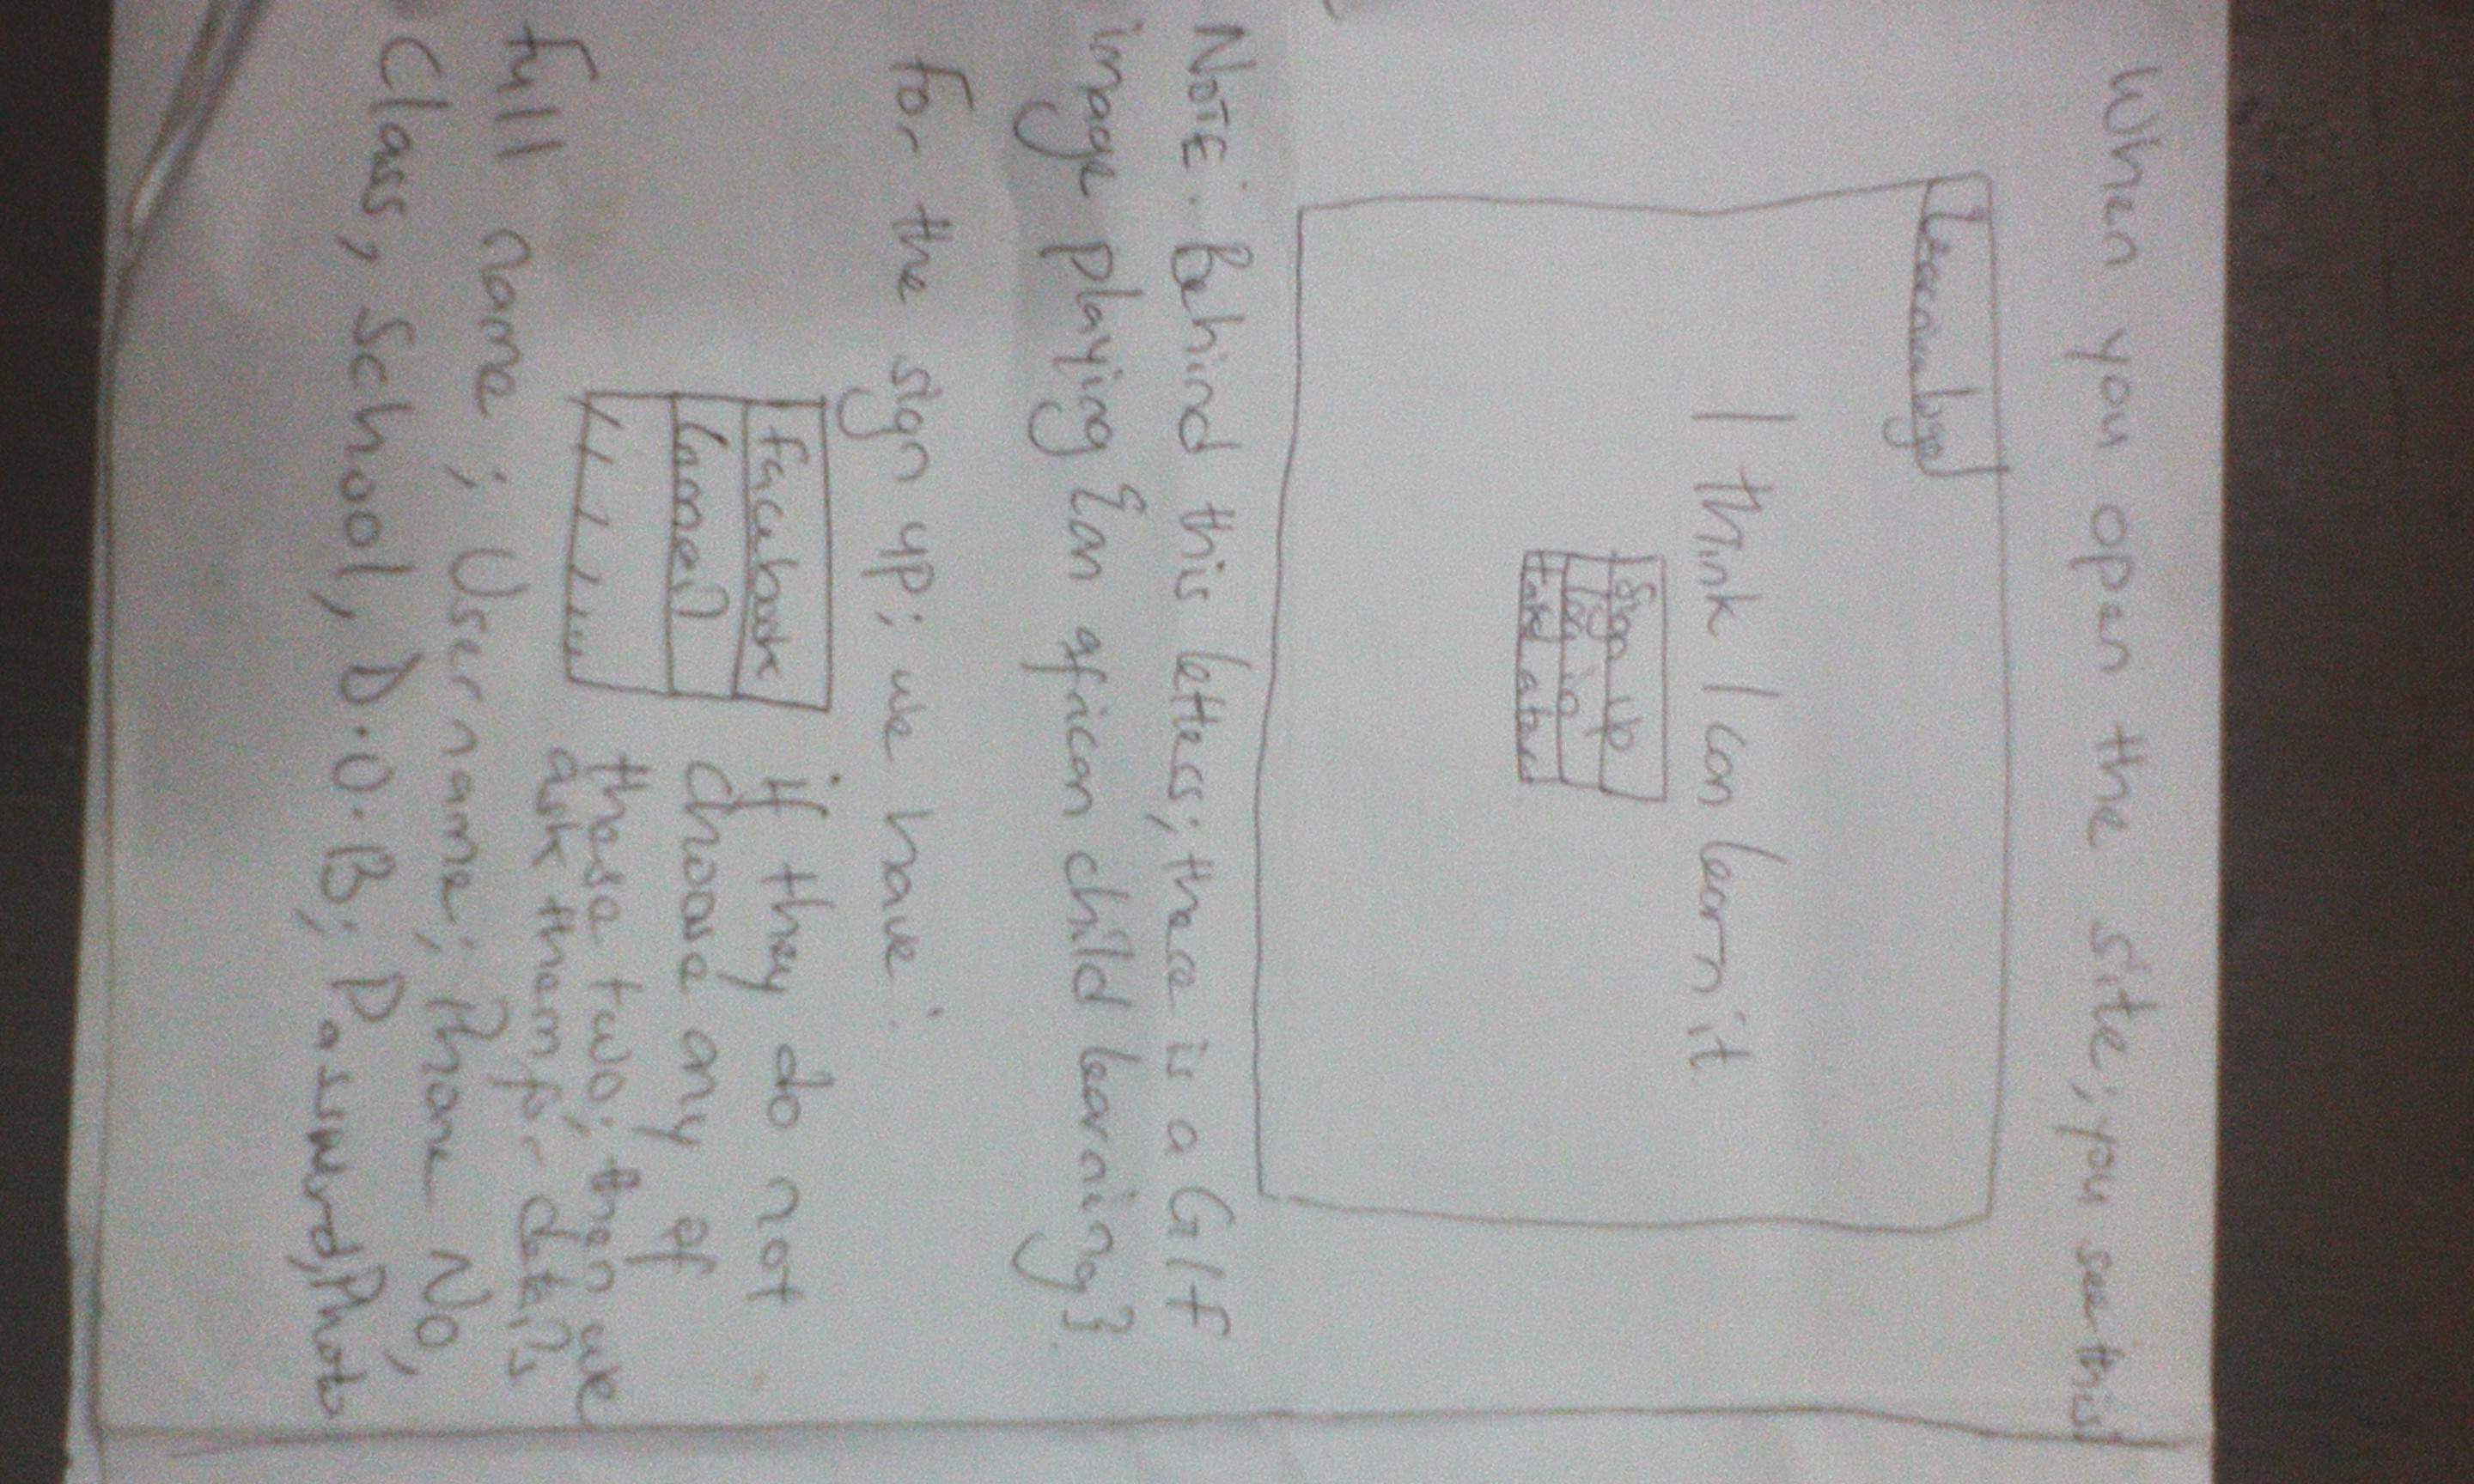 When you open the site; you see this
logo
I think I can learn it.
Sign Up
log in
NOTE: Behind this letters; there is a GIF
image playing {an african child learning}
For the sign up; we have:
facebook
if they do not
choose any of
these two; then we
ask them for details
full name; User name; Phone No,
Class, School, D.O.B, Password, Photo